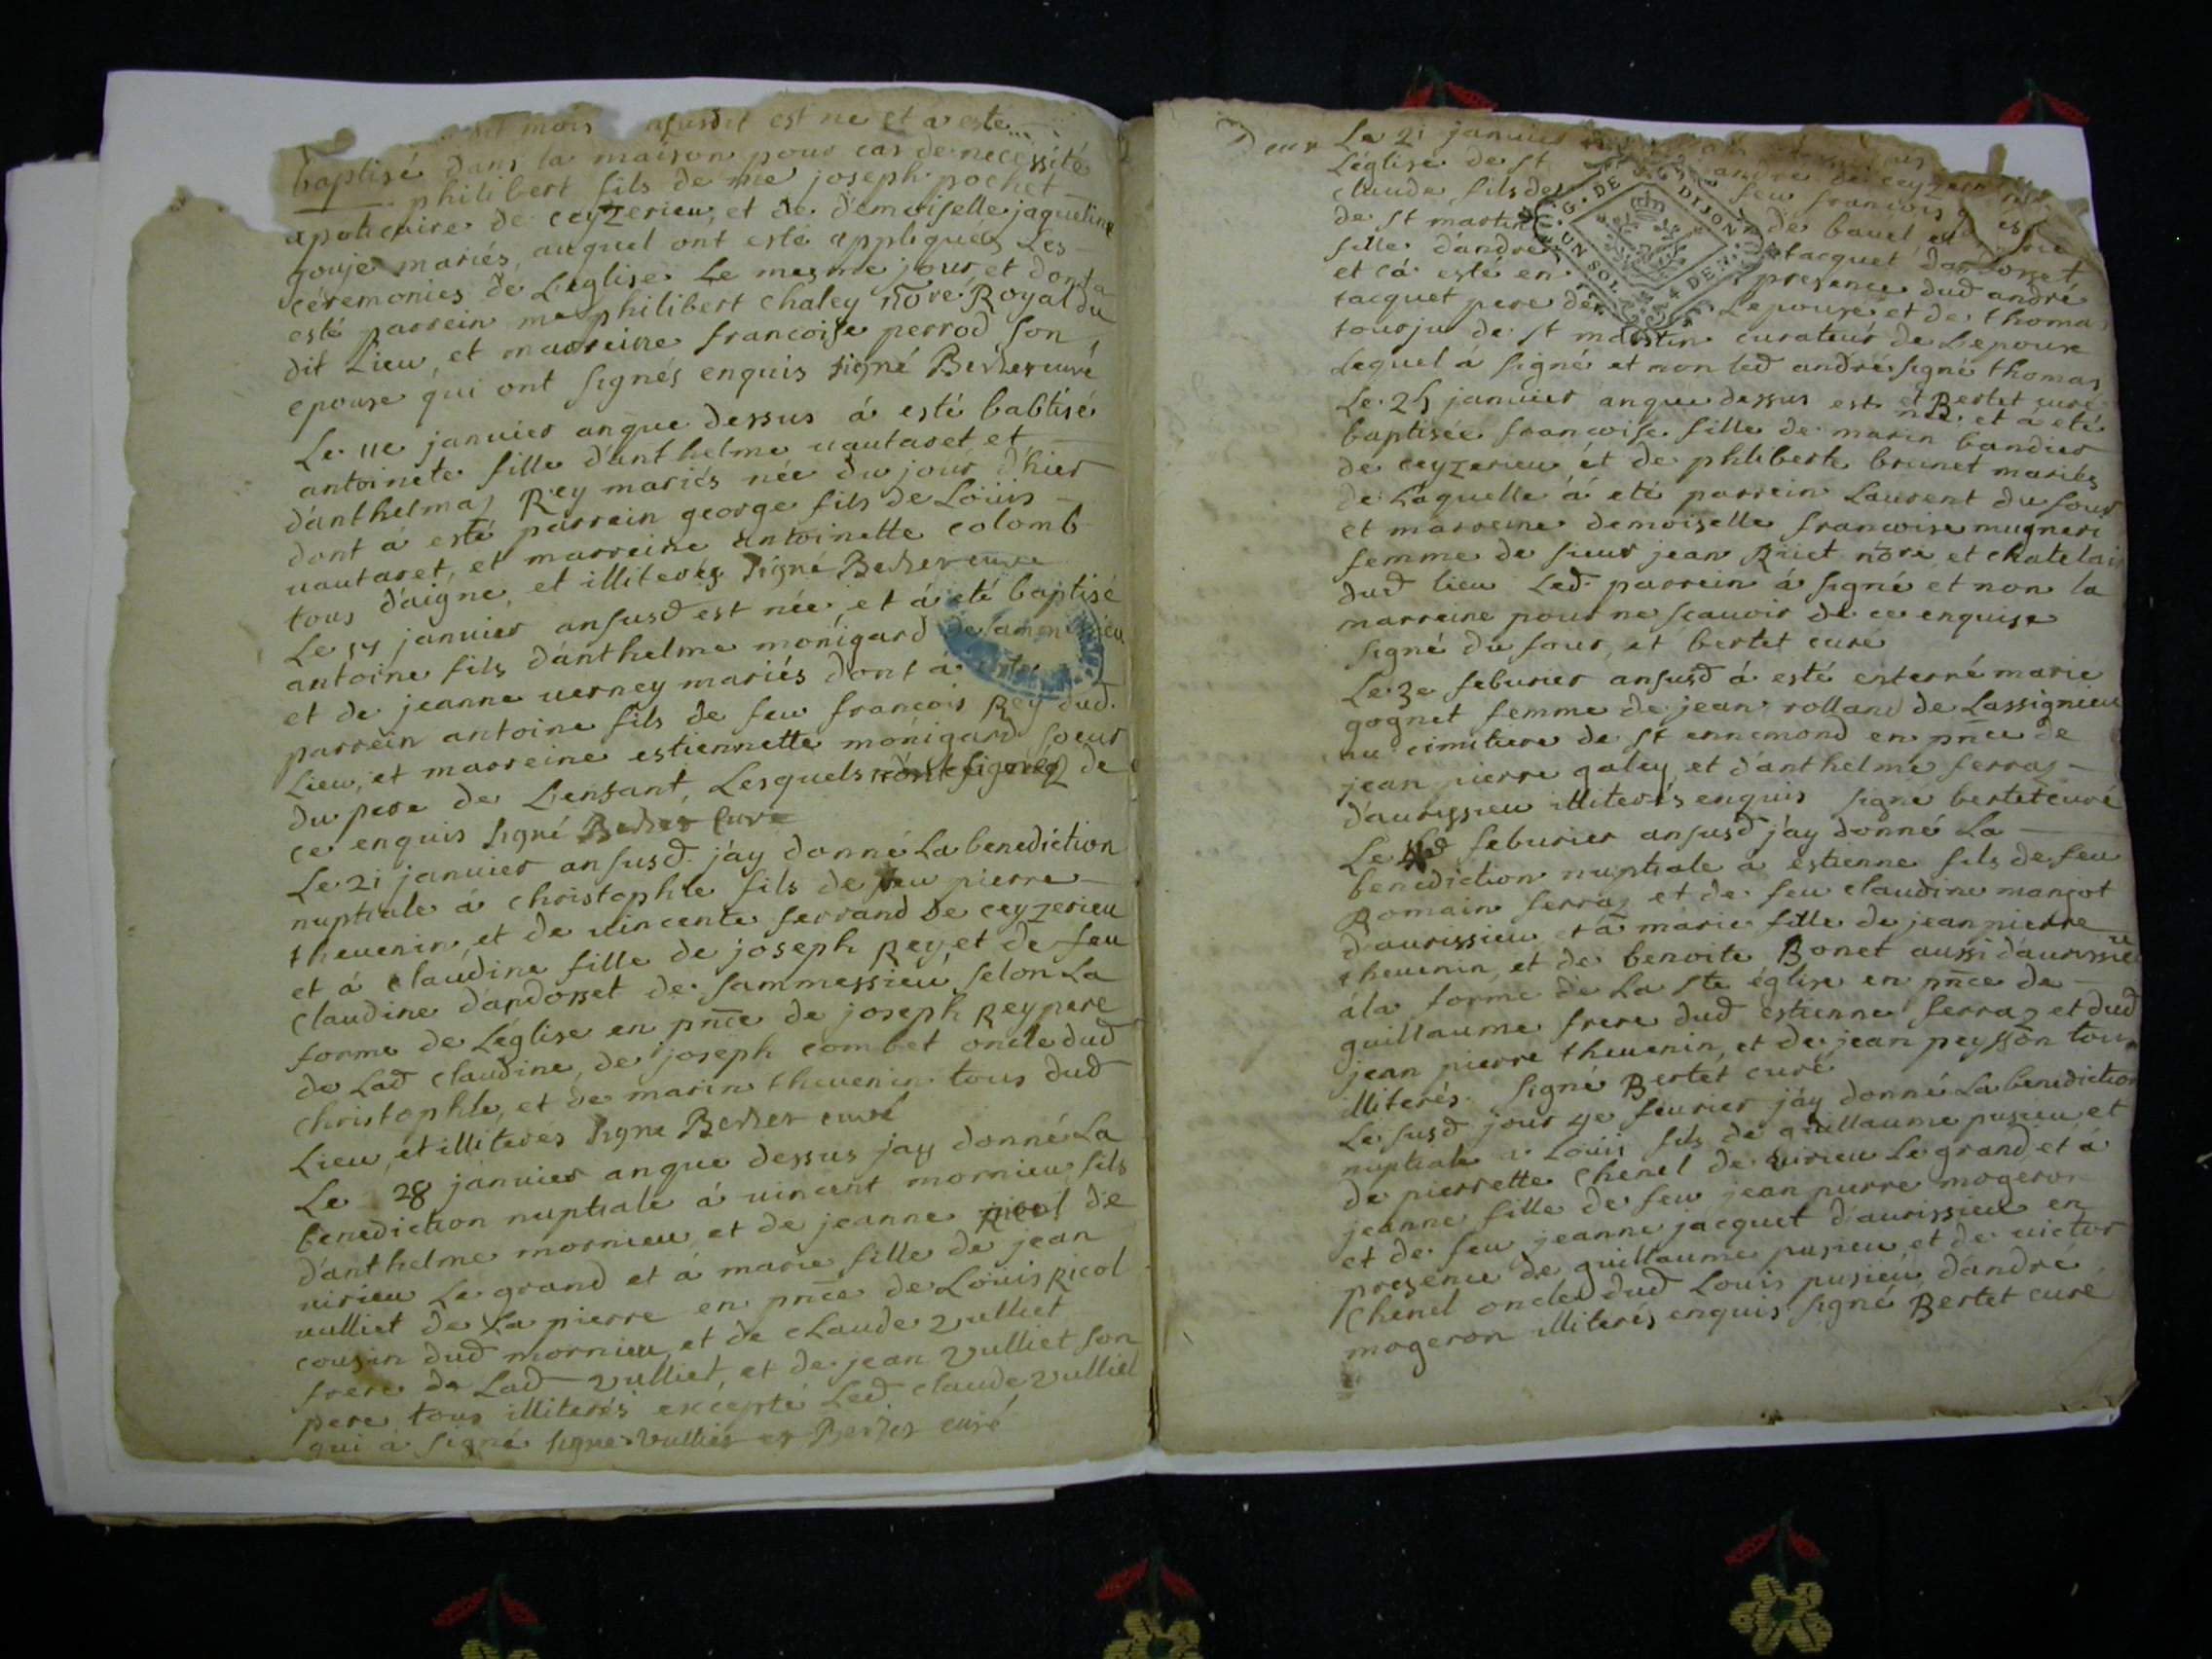 mois est ne et a este
baptisé dans la maison pour cas de necessité
philibert fils de me joseph pochet
apoticaire de ceyzerieu, et de demoiselle jaqueline
gouje mariés, auquel ont esté appliqués Les
céremonies de L'eglise Le mesme jour, et dont a
esté parrein me philibert chaley nore Royal du
dit Lieu, et marreine francoise perrod son
epouse qui ont signés enquis signé Bertet curé
Le 11e janvier an que dessus á esté babtisé
antoinete fille d'anthelme vautaret et
d'anthelmaz Rey mariés née du jour d'hier
dont á esté parrein george fils de Loüis
vautaret, et marreine antoinette colomb
tous d'aigne, et illiterés signé Bertet curé
Le 14 janvier ansusd est née, et á eté baptisé
antoine fils d'anthelme monigard de sammessieu
et de jeanne verney mariés dont á esté
parrein antoine fils de feu francois Rey dud.
Lieu, et marreine estiennette monigard soeur
du pere de L'enfant, Lesquels n'ont signés de
ce enquis signé Bertet Curé
Le 21 janvier ansusd. j'ay donné La benediction
nuptiale á christophle fils de feu pierre
thevenin, et de vincente ferrand de ceyzerieu
et á claudine fille de joseph Rey, et de feu
Claudine dardosset de sammessieu, selon La
forme de L'église en pnce de joseph Rey pere
de Lad claudine, de joseph combet oncle dud
christophle, et de marin thevenin tous dud
Lieu, et illiterés signe Bertet curé
Le 28 janvier an que dessus jay donné La
benediction nuptiale á vincent mornieu fils
d'anthelme mornieu, et de jeanne ricol de
virieu Le grand et á marie fille de jean
vulliet de La pierre en pnce de Loüis Ricol
cousin dud mornieu, et de claude vulliet
frere de Lad vulliet, et de jean vulliet son
pere tous illiterés excepté Led claude vulliet
qui á signé signe Vulliet et Bertet curé
Deux Le 21 janvier
L'église de st andré de ceyzerieu
claude fils de feu francois
de st martin de bavel et
fille d'andré tacquet dardosset
et cá esté en presence dud andré
tacquet pere de L'epouse et de thomas
tourju de st martin curateur de L'epouse
Lequel á signé et non led andré signé thomas
et Bertet curé
Le 25 janvier an que dessus est née et á eté
baptisée francoise fille de marin bandier
de ceyzerieu et de philiberte brunet mariés
de Laquelle á eté parrein Laurent du four
et marreine demoiselle francoise mugneri
femme de sieur jean Riiet nore et chatelain
dud lieu Led. parrein á signé et non la
marreine pour ne scavoir de ce enquise
signé du four, et bertet curé
Le 3e feburier ansusd á esté enterré marie
gognet femme de jean rolland de Lassignieu
au cimitiere de st ennemond en pnce de
jean pierre galey, et d'anthelme ferraz
d'aurissieu illiterés enquis signé bertet curé
Le 4e feburier ansusd j'ay donné La
benediction nuptiale a estienne fils de feu
Romain ferraz et de feu claudine manjot
d'aurissieu et á marie fille de jean pierre
thevenin, et de benoite Bonet aussi d'aurissieu
á la forme de La ste église en pnce de
guillaume frere dud estienne ferraz et dud
jean pierre thevenin, et de jean peysson tous
illiterés. signé Bertet curé
Le susd jour 4e feurier j'ay donné La benediction
nuptiale a Loüis fils de guillaume pusieu et
de pierrette Chenel de virieu Le grand, et á
jeanne fille de feu jean pierre mogeron
et de feu jeanne jacquet d'aurissieu en
presence de guillaume pusieu, et de victor
Chenel oncle dud Louis pusieu, d'andré
mogeron illiterés enquis signé Bertet curé
G. DE DIJON
UN SOL 4 DE.